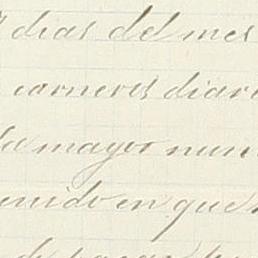 dias del mes
carneros diari
la mayor num
enido en que